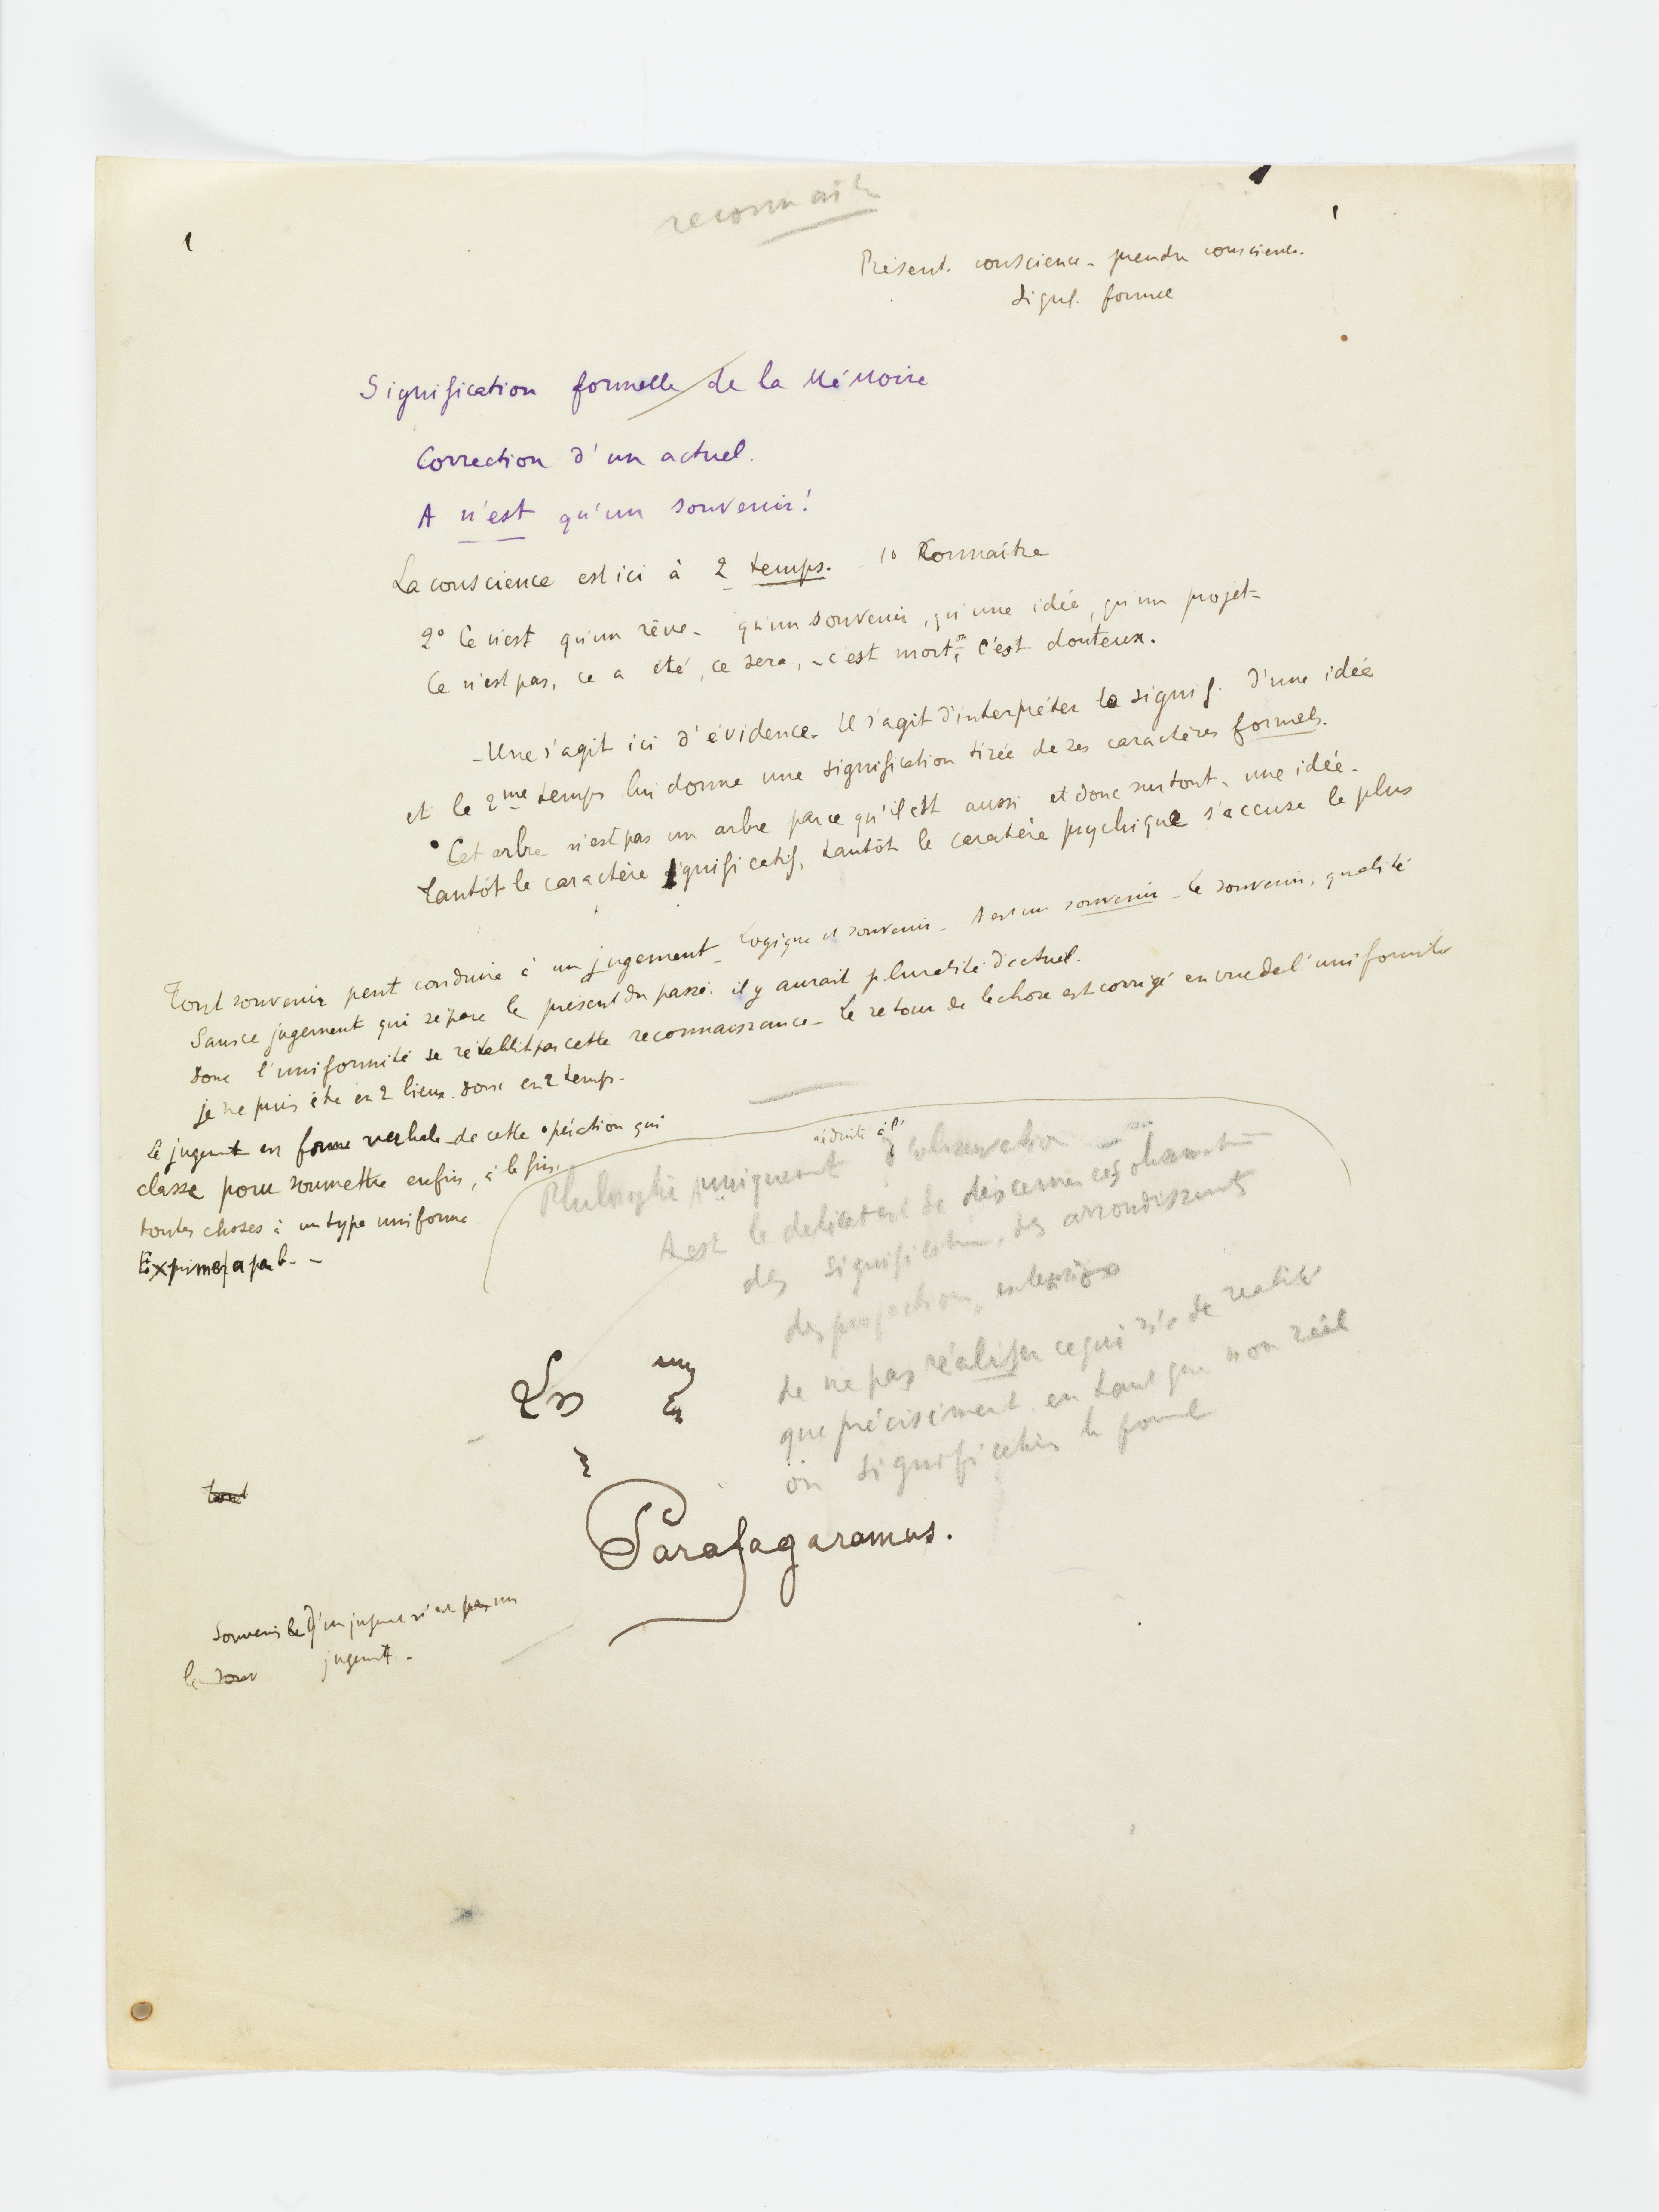 reconnaître
Présent. conscience - prendre conscience.
Signif. formel
Signification formelle de la Mémoire
Correction d'un actuel.
A n'est qu'un souvenir!
La conscience est ici à 2 temps. 1º Connaître
2º Ce n'est qu'un rêve - qu'un souvenir, qu'une idée, qu'un projet -
Ce n'est pas, ce a été, ce sera, - c'est mort, on c'est douteux.
- Il ne s'agit ici d'évidence. Il s'agit d'interpréter la signif. d'une idée
et le 2me temps lui donne une signification tirée de ses caractères formels.
Cet arbre n'est pas un arbre parce qu'il est aussi et donc surtout - une idée -
Tantôt le caractère significatif, tantôt le caractère psychique s'accuse le plus
Tout souvenir peut conduire à un jugement - Logique et souvenir - A est un souvenir - Le souvenir, qualité
Sans ce jugement qui sépare le présent du passé. il y aurait pluralité d'actuel.
donc l'uniformité se rétablit par cette reconnaissance - Le retour de la chose est corrigé en vue de l'uniformité
je ne puis être en 2 lieux donc en 2 temps -
Le jugemt est forme verbale de cette opération qui
classe pour soumettre enfin, à la fin,
toutes choses à un type uniforme
Exprimer a par b - -
réduite à l'
Philosophie uniquement d'observation
A est le délicatesse de discerner ces
des significations, des arrondissements
des projections, extensions
de ne pas réaliser ce qui n'a de réalité
que précisément en tant que non réel
on signification le formel
Parafagaramus.
tout
Souvenir de d'un jugemt n'est pas un
le souv jugemt -